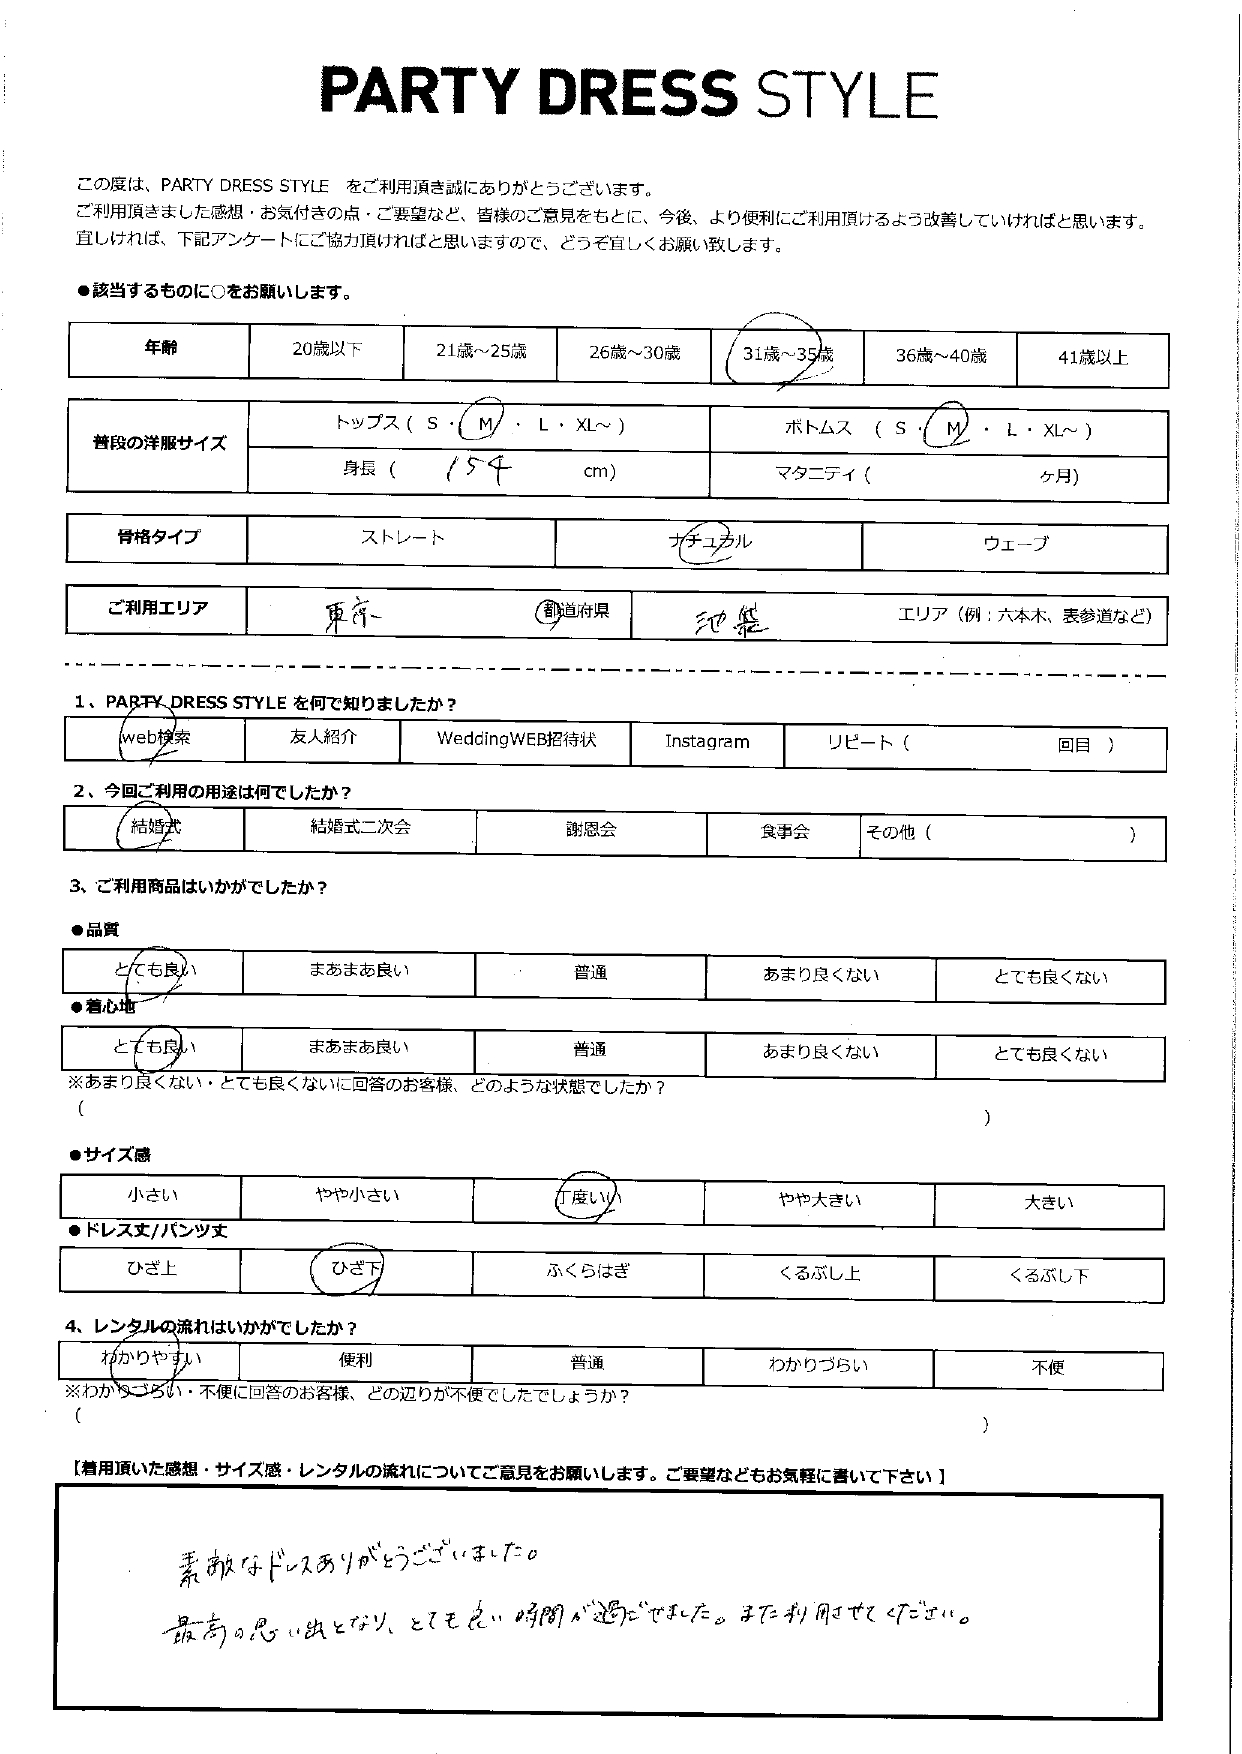 PARTY DRESS STYLE
この度は、PARTY DRESS STYLE　をご利用頂き誠にありがとうございます。
ご利用頂きました感想・お気付きの点・ご要望など、皆様のご意見をもとに、今後、より便利にご利用頂けるよう改善していければと思います。
宜しければ、下記アンケートにご協力頂ければと思いますので、どうぞ宜しくお願い致します。
●該当するものに○をお願いします。
年齢 20歳以下 21歳～25歳 26歳～30歳 31歳～35歳 36歳～40歳 41歳以上
普段の洋服サイズ トップス（ S ・ M ・ L ・ XL～ ） ボトムス （ S ・ M ・ L ・ XL～ ）
身長（ 154 cm） マタニティ（ ヶ月）
骨格タイプ ストレート ナチュラル ウェーブ
ご利用エリア 東京 都道府県 池袋 エリア（例：六本木、表参道など）
1、PARTY DRESS STYLE を何で知りましたか？
web検索 友人紹介 WeddingWEB招待状 Instagram リピート（ 回目 ）
2、今回ご利用の用途は何でしたか？
結婚式 結婚式二次会 謝恩会 食事会 その他（ ）
3、ご利用商品はいかがでしたか？
●品質
とても良い まあまあ良い 普通 あまり良くない とても良くない
●着心地
とても良い まあまあ良い 普通 あまり良くない とても良くない
※あまり良くない・とても良くないに回答のお客様、どのような状態でしたか？
（ ）
●サイズ感
小さい やや小さい 丁度いい やや大きい 大きい
●ドレス丈/パンツ丈
ひざ上 ひざ下 ふくらはぎ くるぶし上 くるぶし下
4、レンタルの流れはいかがでしたか？
わかりやすい 便利 普通 わかりづらい 不便
※わかりづらい・不便に回答のお客様、どの辺りが不便でしたでしょうか？
（ ）
【着用頂いた感想・サイズ感・レンタルの流れについてご意見をお願いします。ご要望などもお気軽に書いて下さい 】
素敵なドレスありがとうございました。
最高の思い出となり、とても良い時間が過ごせました。また利用させてください。